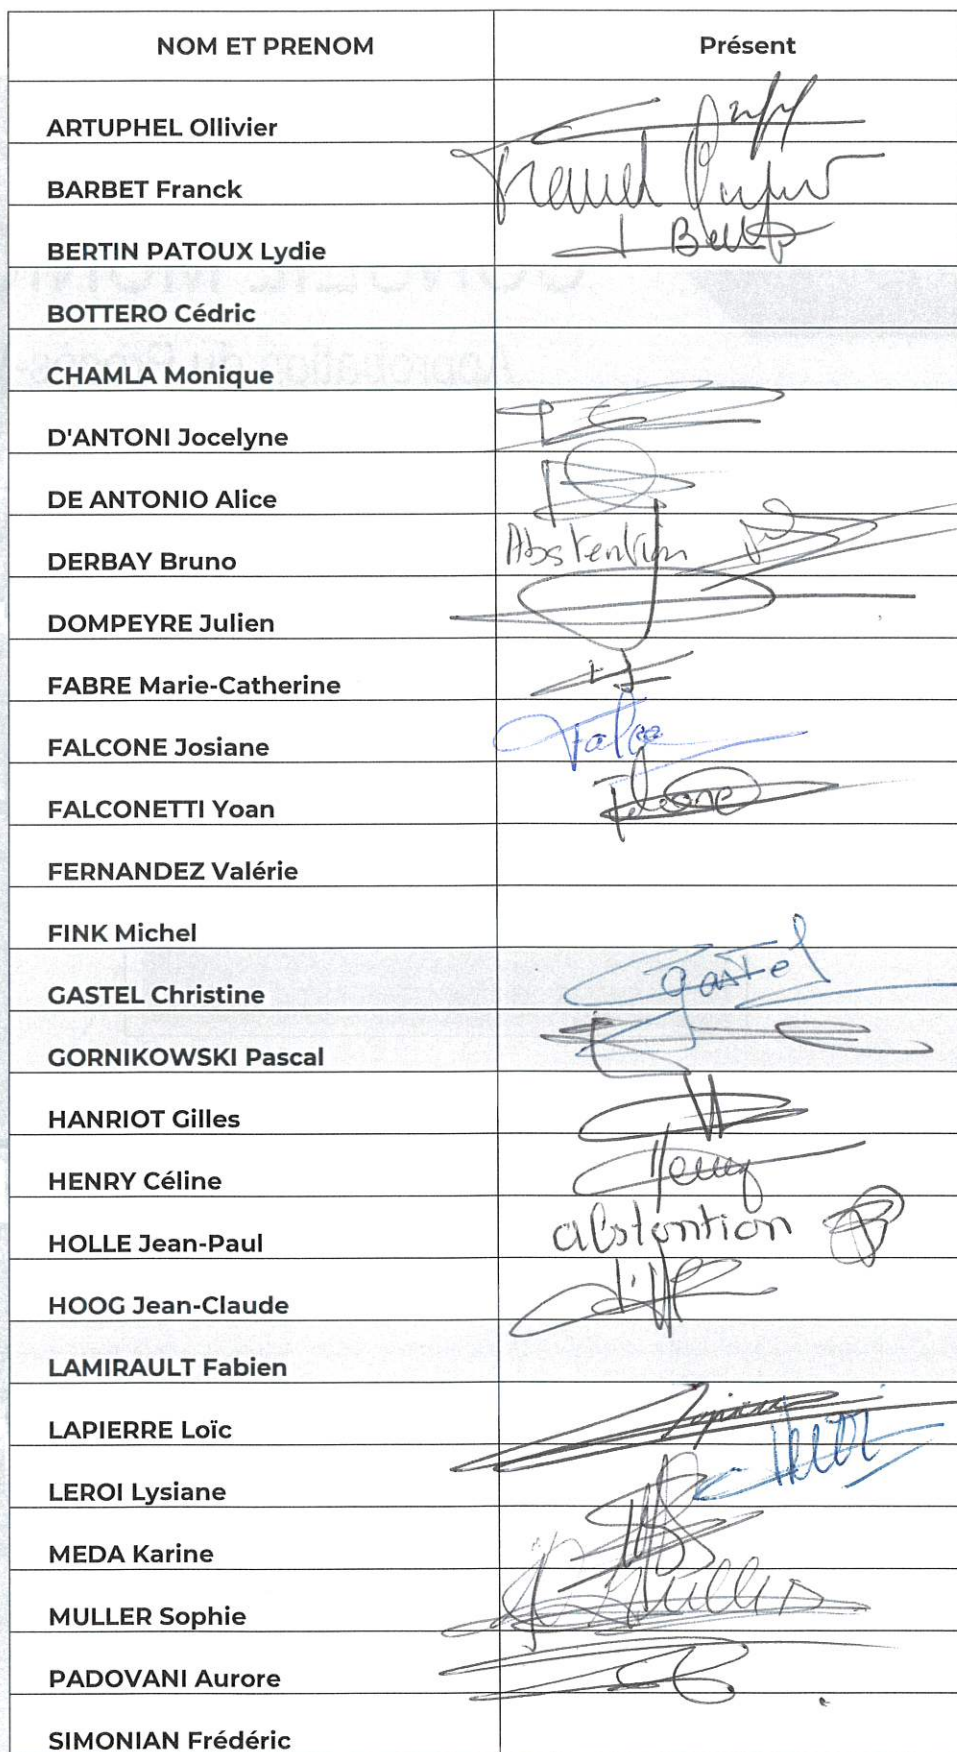 NOM ET PRENOM Présent
ARTUPHEL Ollivier
BARBET Franck Franck
BERTIN PATOUX Lydie
BOTTERO Cédric
CHAMLA Monique
D'ANTONI Jocelyne
DE ANTONIO Alice
DERBAY Bruno Abstention
DOMPEYRE Julien
FABRE Marie-Catherine
FALCONE Josiane
FALCONETTI Yoan
FERNANDEZ Valérie
FINK Michel
GASTEL Christine gastel
GORNIKOWSKI Pascal
HANRIOT Gilles
HENRY Céline Henry
HOLLE Jean-Paul abstention
HOOG Jean-Claude
LAMIRAULT Fabien
LAPIERRE Loïc
LEROI Lysiane
MEDA Karine
MULLER Sophie Muller
PADOVANI Aurore
SIMONIAN Frédéric